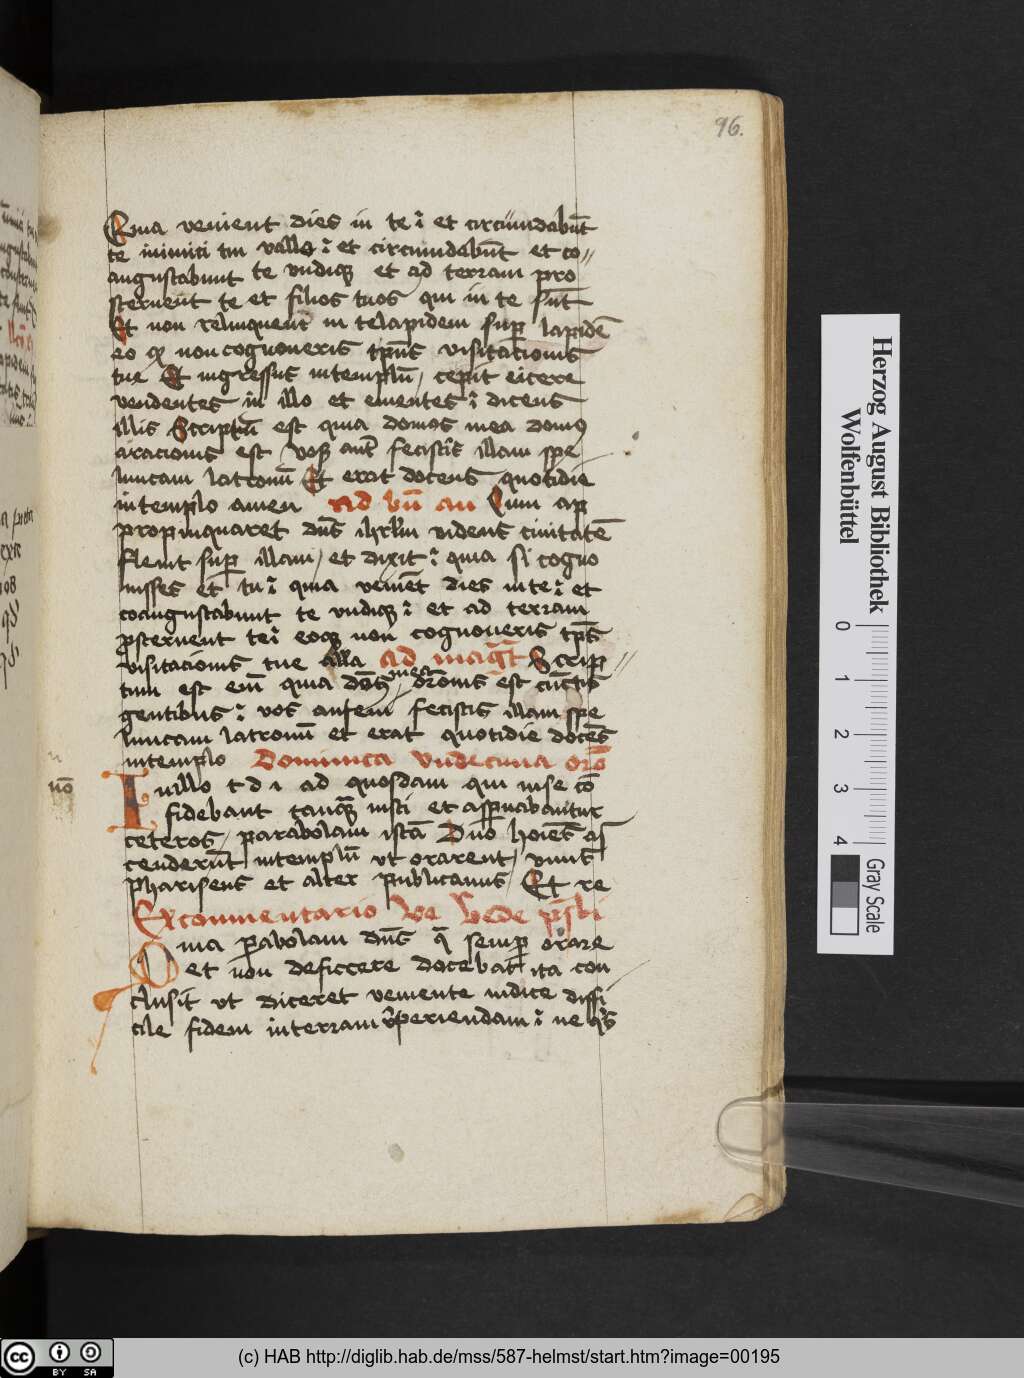 96.
Quia venient dies in te ⁊ et circūndabūt
te inimici tui vallo ⁊ et circūndabūt et co
angustabunt te vndiqꝫ et ad terram pro
sternent te et filios tuos qui in te sūt
Et non relinquent in te lapidem suꝑ lapidē
eo qꝫ non cognoueris tp̄us visitacionis
tue Et ingressus in templū / cepit eicere
vendentes in illo et ementes ⁊ dicens
illis Scriptū est quia domus mea domus
oracionis est / vos aut̄ fecistis illam spe
luncam latronū Et erat docens quotidie
in templo amen Ad bn̄ an Cum ap
propinquaret dn̄s ihrlm videns ciuitatē
fleuit suꝑ illam / et dixit ⁊ quia si cogno
uisses et tu ⁊ quia venient dies in te ⁊ et
coangustabunt te vndiqꝫ ⁊ et ad terram
ꝓsternent te ⁊ eo qꝫ non cognoueris tp̄s
visitacionis tue alla Ad mag̅t Scrip
tum est em̄ quia domus mea or̄onis est cūctis
gentibus ⁊ vos autem fecistis illam spe
luncam latronū et erat quotidie docēs
in templo Dominica vndecima
nō
In illo t d i ad quosdam qui in se cō
fidebant tanqᷓ iusti et asp̄nabantur
ceteros / parabolam istā Duo hoīes as
cenderūt in templū vt orarent / vnus
phariseus et alter publicanus / Et re
Ex commentario be bede p̄sbi
Quia ꝑabolam dn̄s qᷓ semꝑ orare
et non deficcere docebat ita con
clusit vt diceret veniente iudice diffi
cile fidem in terram reperiendam ⁊ ne qͥs
Herzog August Bibliothek
Wolfenbüttel
0 1 2 3 4
Gray Scale
cc BY SA
(c) HAB http://diglib.hab.de/mss/587-helmst/start.htm?image=00195